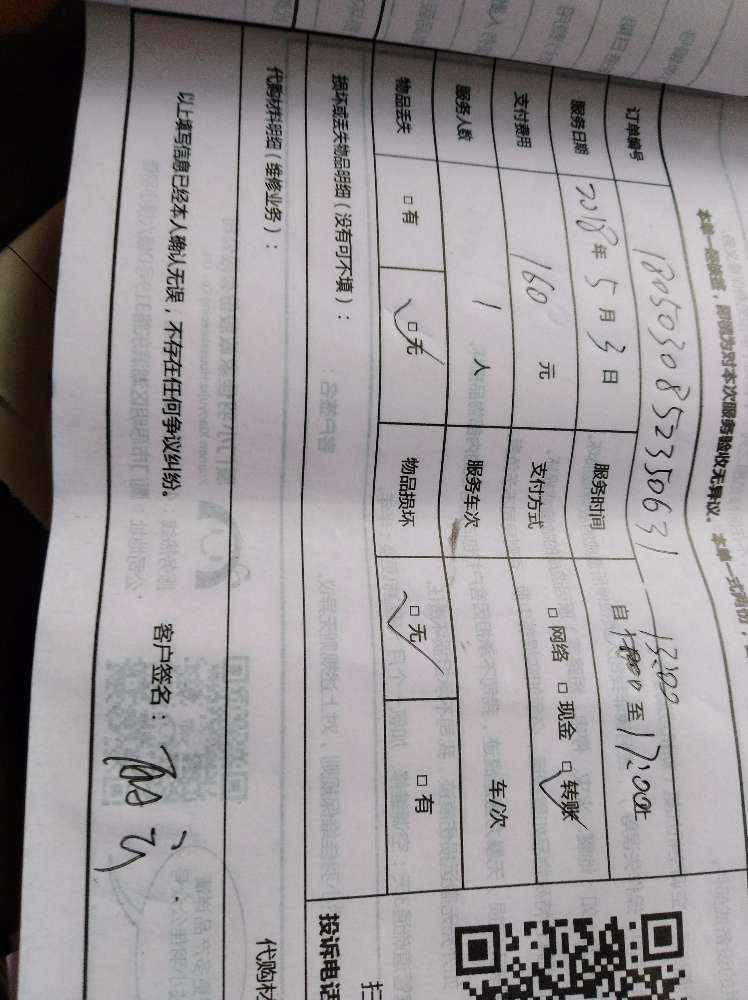 本单一经签字，即视为对本次服务验收无异议。 本单一式两份，
订单编号 1805030852350631
服务日期 2018年5月3日 服务时间 自 13:00 至 17:00止
支付费用 160元 支付方式 □网络 □现金 □转账
服务人数 1人 服务车次 车/次
物品丢失 □有 □无 物品损坏 □无 □有
损坏或丢失物品明细（没有可不填）：
代购材料明细（维修业务）：
以上填写信息已经本人确认无误，不存在任何争议纠纷。
客户签名：
投诉电话
代购材
扫